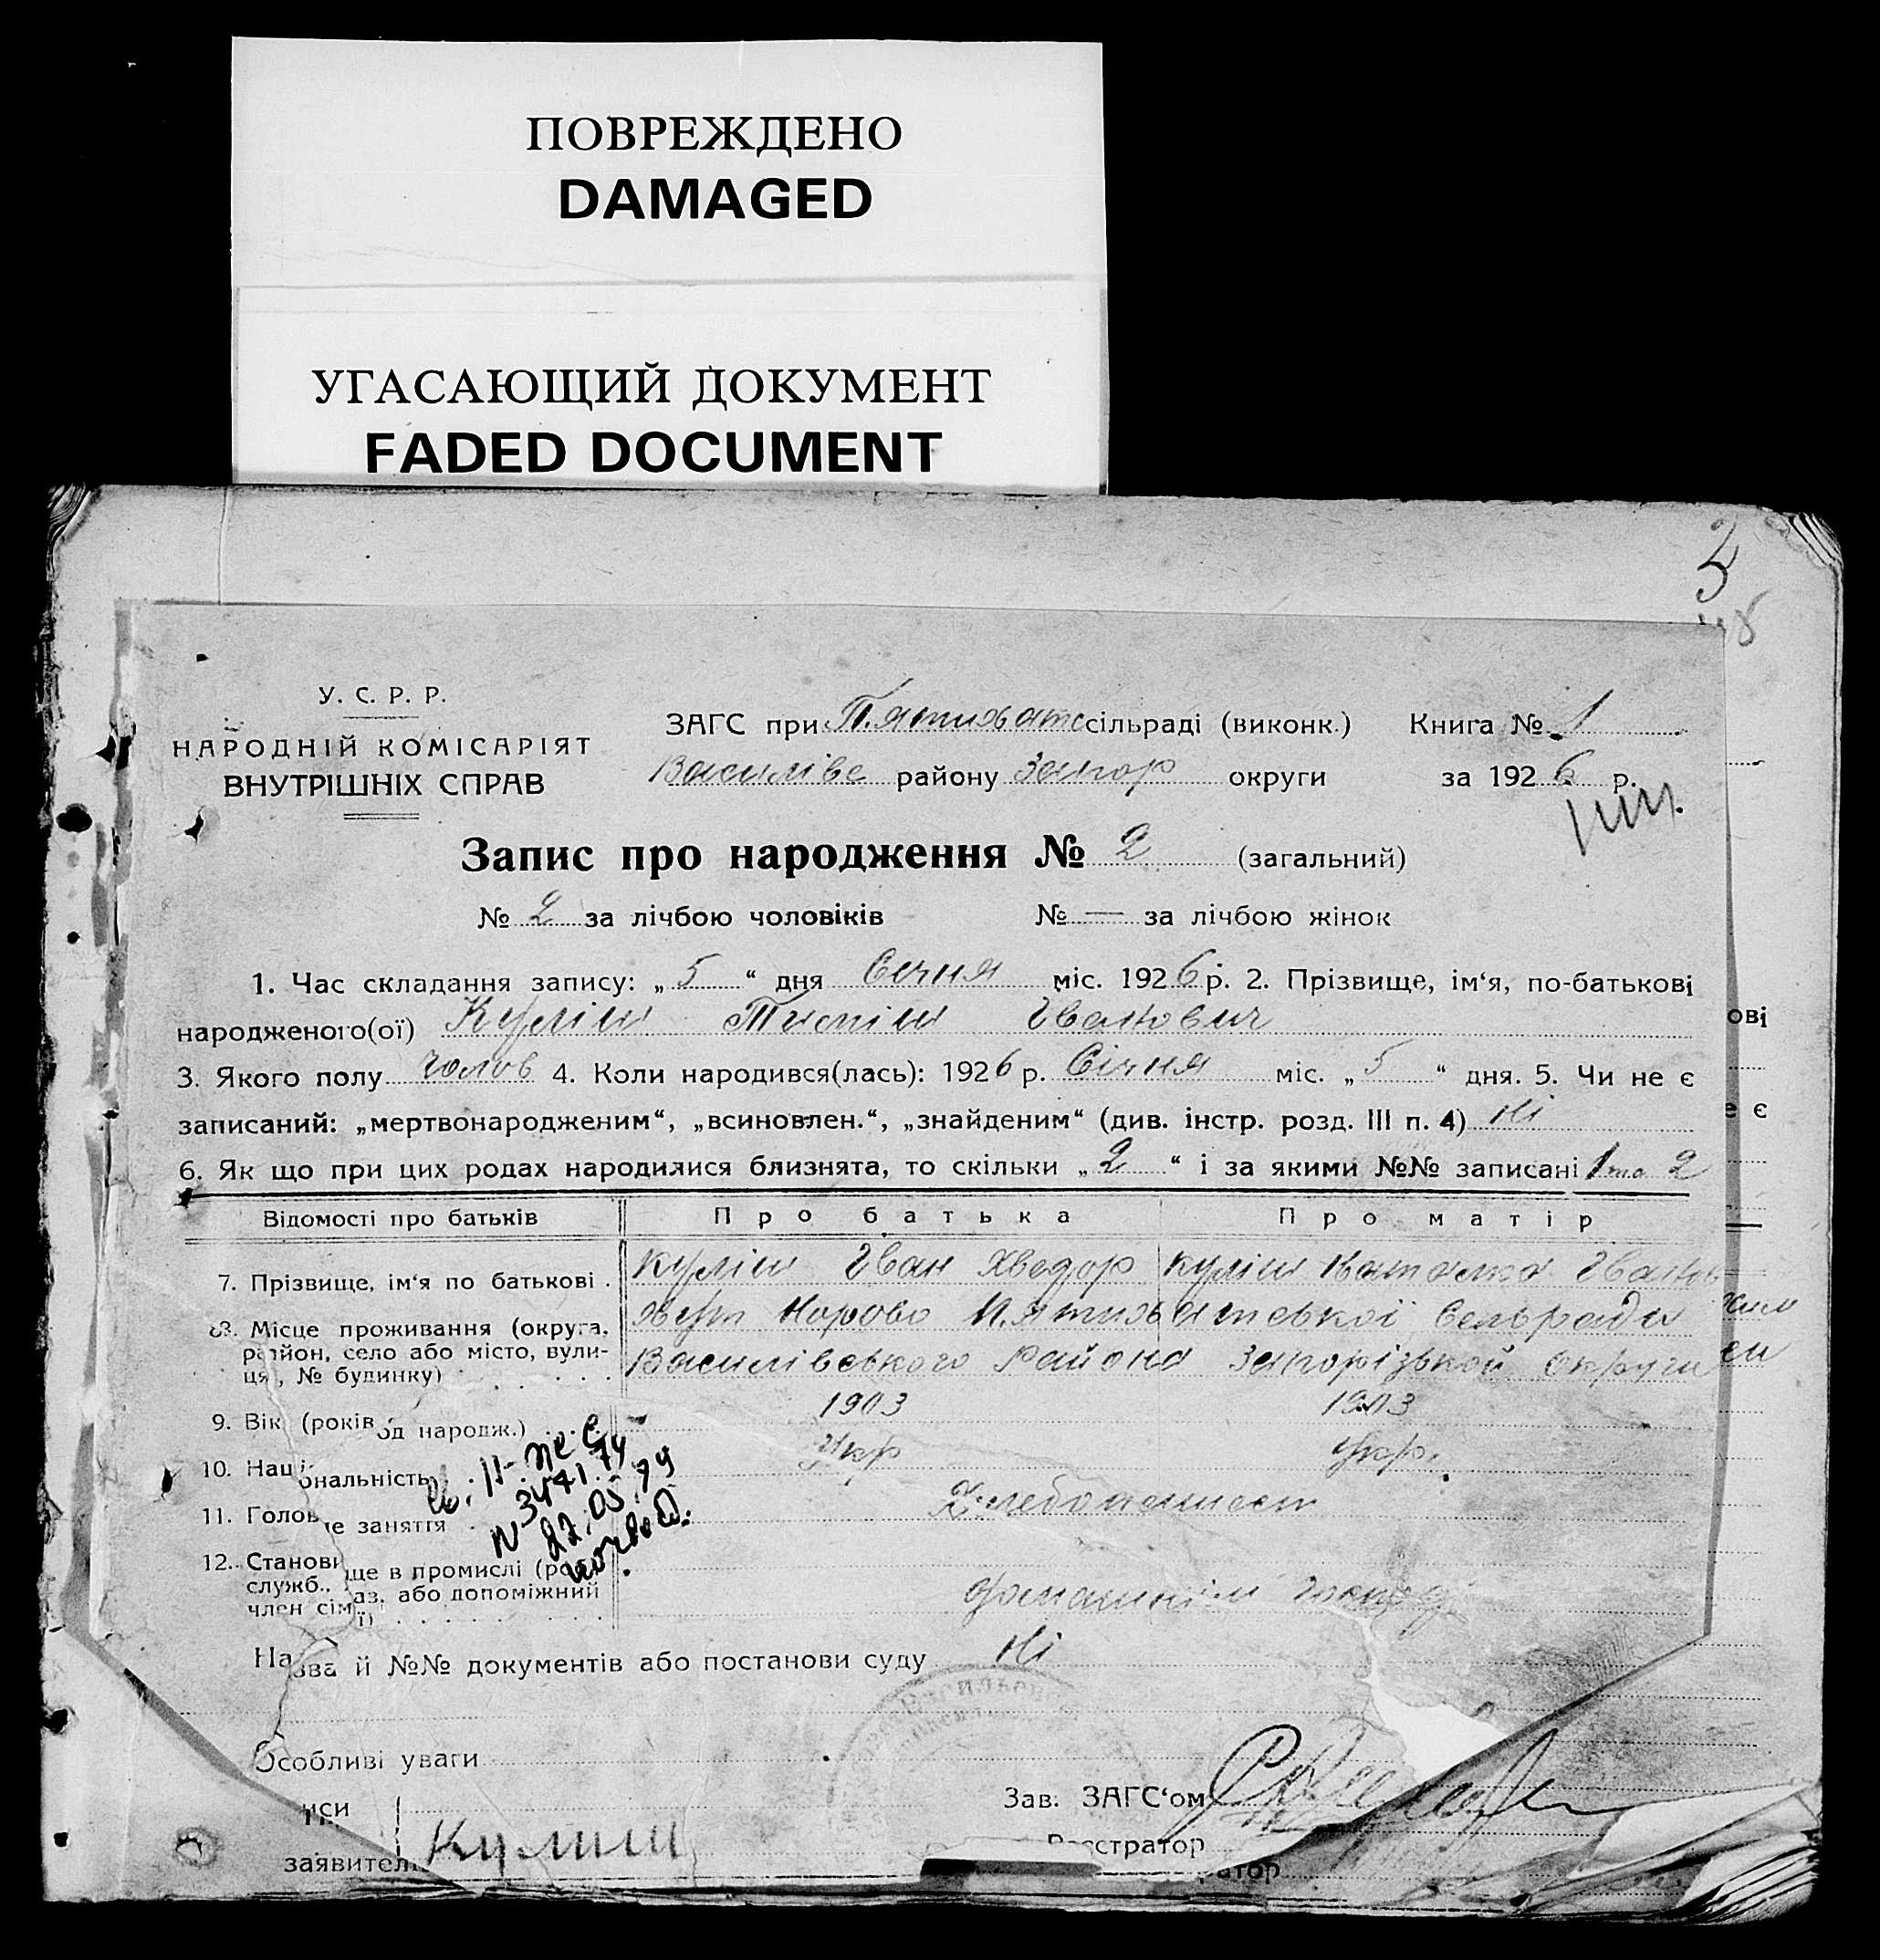 ПОВРЕЖДЕНО
DAMAGED
УГАСАЮЩИЙ ДОКУМЕНТ
FADED DOCUMENT
У. С. Р. Р.
НАРОДНІЙ КОМІСАРІЯТ
ВНУТРІШНІХ СПРАВ
ЗАГС при П.ятихатс сільраді (виконк.) Книга № 1
Василівс району Запор округи за 1926 р.
Запис про народження № 2 (загальний)
№ 2 за лічбою чоловіків № — за лічбою жінок
1. Час складання запису: „5“ дня Січня міс. 1926 р. 2. Прізвище, ім‘я, по-батькові
народженого(ої) Куліш Іванович
3. Якого полу чолов 4. Коли народився(лась): 1926 р. Січня міс. „5“ дня. 5. Чи не є
записаний: „мертвонародженим“, „всиновлен.“, „знайденим“ (див. інстр. розд. III п. 4) Ні
6. Як що при цих родах народилися близнята, то скільки „2“ і за якими №№ записані 1 та 2
Відомості про батьків Про батька Про матір
7. Прізвище, ім‘я по батькові. Куліш Іван Хведор Куліш Наталка Іванов
8. Місце проживання (округа, хут П.ятихатської Сельради
район, село або місто, вули- Василівського Района Запорізькой Округи
ця, № будинку)
9. Вік (років од народж.) 1903 1903
10. Національність Укр Укр.
11. Головне заняття Хлебопашест
12. Становище в промислі (роб.
служб., газ. або допоміжний
член сім‘ї)
Назва й №№ документів або постанови суду Ні
Особливі уваги
Зав. ЗАГС‘ом
иси
Реєстратор
заявител Кулиш
атор